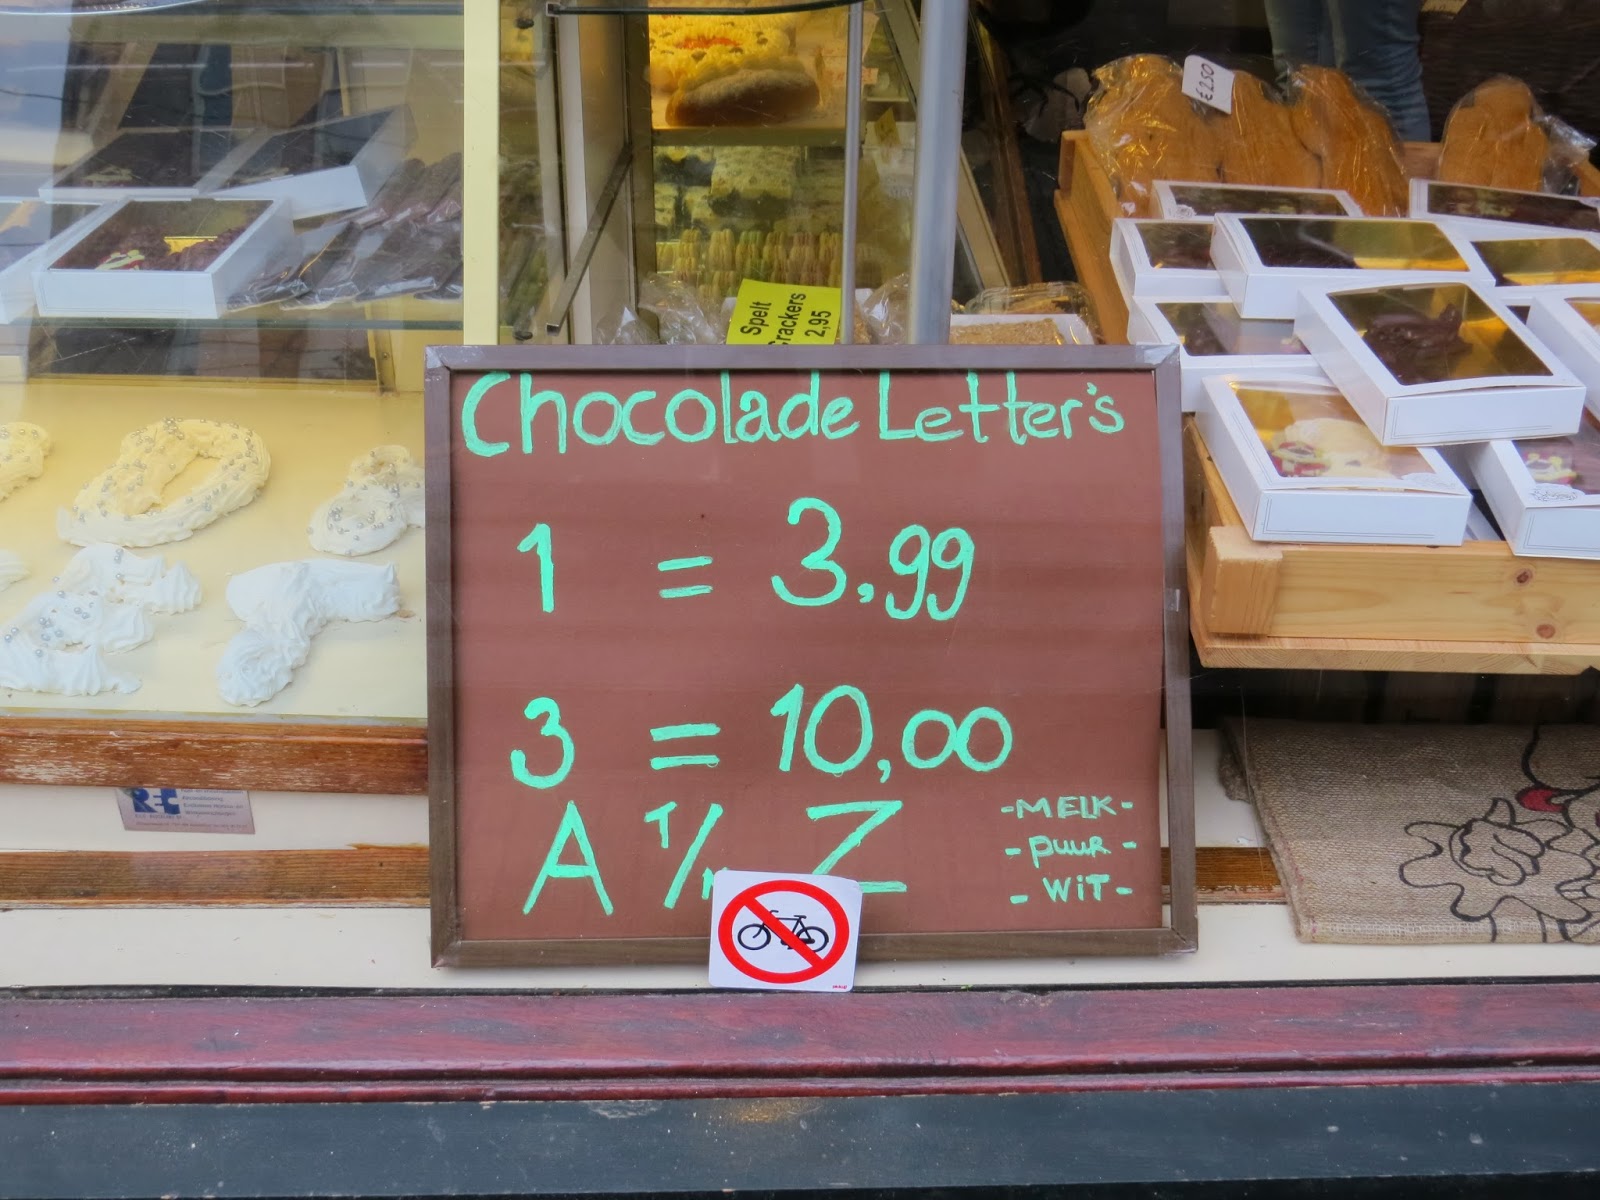 €2.50
Spelt
Crackers
2,95
Chocolade Letter's
1 = 3,99
3 = 10,00
A T/m Z
-MELK-
-PUUR-
-WIT-
REC